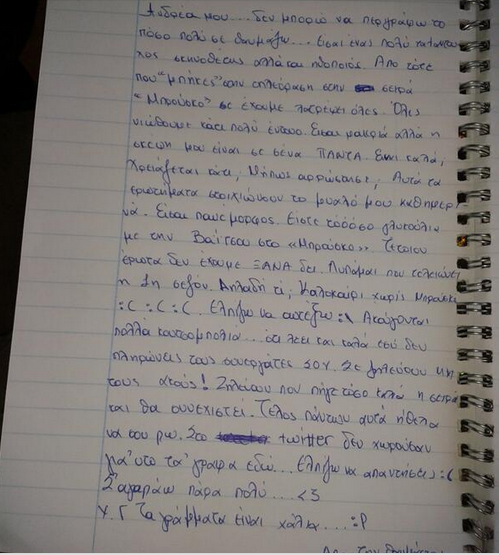 Ανδρέα μου... δεν μπορώ να περιγράψω το
πόσο πολύ σε θαυμάζω... Είσαι ένας πολύ ταλαντού
χος σκηνοθέτης αλλά και ηθοποιός. Από τότε
που "μπήκες" στην τηλεόραση στην σειρά
"Μπρούσκο" σε έχουμε λατρέψει όλες. Όλες
νιώθουμε κάτι πολύ έντονο. Είσαι μακριά αλλά η
σκέψη μου είναι σε σένα ΠΑΝΤΑ. Είναι καλά;
Χρειάζεται κάτι; Μήπως αρρώστησε; Αυτά τα
ερωτήματα στοιχιώνουν το μυαλό μου καθημερι
νά. Είσαι πανέμορφος. Είστε τόσοοο γλυκούλι
με την Βάιτσου στο «Μπρούσκο». Τέτοιον
έρωτα δεν έχουμε ΞΑΝΑ δει. Λυπάμαι που τελειώνει
η 1η σεζόν. Δηλαδή τι; Καλοκαίρι χωρίς Μπρούσκο
:( :( :( Ελπίζω να αντέξω :\ Ακούγονται
πολλά κουτσομπολιά... ότι λέει και καλά εσύ δεν
πληρώνεις τους συνεργάτες σου. Σε ζηλεύουν
τους αυτούς! Ζηλεύουν που πήγε τόσο καλά η σειρά
και θα συνεχιστεί. Τέλος πάντων αυτά ήθελα
να σου πω. Στο twitter δεν χωρούσαν
γι'αυτό τα'γραψα εδώ... Ελπίζω να απαντήσεις :(
Σ'αγαπάω πάρα πολύ... <3
Υ.Γ Τα γράμματα είναι χάλια... :P